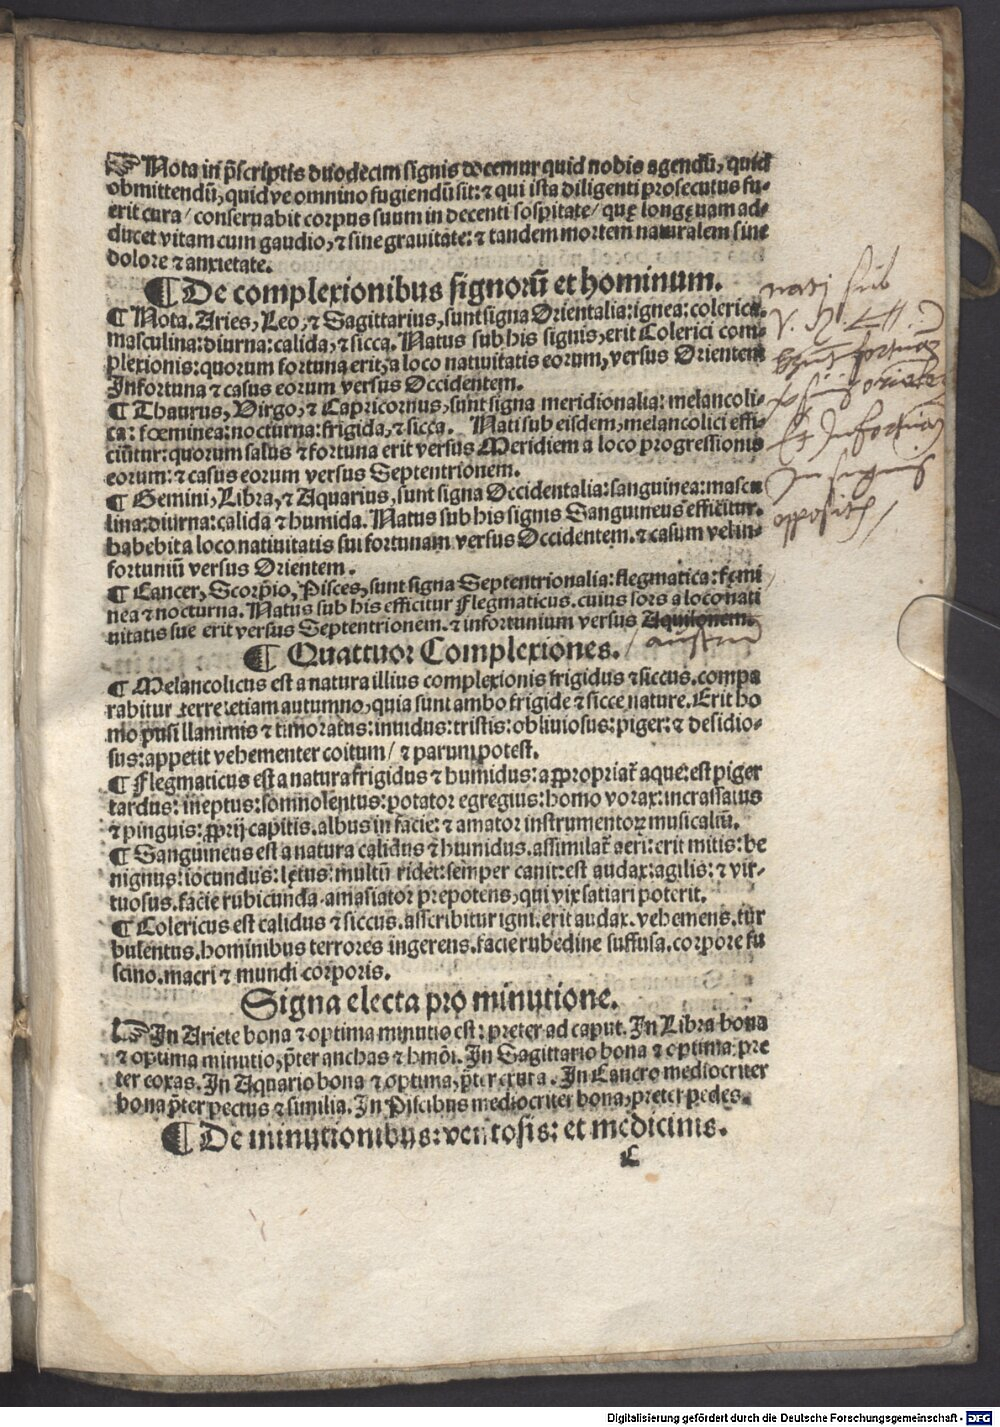 ☞ Nota in p̄scriptis duodecim signis docemur quid nobis agendū, quid
obmittendū, quid ve omnino fugiendū sit: ⁊ qui ista diligenti prosecutus fu-
erit cura / conseruabit corpus suum in decenti sospitate / quę longęuam ad-
ducet vitam cum gaudio, ⁊ sine grauitate: ⁊ tandem mortem naturalem sine
dolore ⁊ anxietate.
¶ De complexionibus signorū et hominum.
¶ Nota. Aries, Leo, ⁊ Sagittarius, sunt signa Orientalia: ignea: colerica.
masculina: diurna: calida, ⁊ sicca. Natus sub his signis, erit Colerici com-
plexionis: quorum fortuna erit, a loco natiuitatis eorum, versus Orientem
Infortuna ⁊ casus eorum versus Occidentem.
¶ Thaurus, Virgo, ⁊ Capricornus, sunt signa meridionalia: melancoli-
ca: fœminea: nocturna: frigida, ⁊ sicca. Nati sub eisdem, melancolici effi-
ciūtur: quorum salus ⁊ fortuna erit versus Meridiem a loco progressionis
eorum: ⁊ casus eorum versus Septentrionem.
¶ Gemini, Libra, ⁊ Aquarius, sunt signa Occidentalia: sanguinea: mascu
lina: diurna: calida ⁊ humida. Natus sub his signis Sanguineus efficitur.
habebit a loco natiuitatis sui fortunam versus Occidentem. ⁊ casum vel in-
fortuniū versus Orientem.
¶ Cancer, Scorpio, Pisces, sunt signa Septentrionalia: flegmatica: fęmi
nea ⁊ nocturna. Natus sub his efficitur Flegmaticus. cuius sors a loco nati
uitatis sue erit versus Septentrionem. ⁊ infortunium versus Aquilonem.
¶ Quattuor Complexiones. / austrum
¶ Melancolicus est a natura illius complexionis frigidus ⁊ siccus. compa
rabitur terre: etiam autumno, quia sunt ambo frigide ⁊ sicce nature. Erit ho
mo pusillanimis ⁊ timoratus: inuidus: tristis: obliuiosus: piger: ⁊ desidio-
sus: appetit vehementer coitum / ⁊ parum potest.
¶ Flegmaticus est a natura frigidus ⁊ humidus: appropriat᷑ aque: est piger
tardus: ineptus: somnolentus: potator egregius: homo vorax: incrassatus
⁊ pinguis: ꝓprij capitis. albus in facie: ⁊ amator instrumentoꝝ musicaliū.
¶ Sanguineus est a natura calidus ⁊ humidus. assimilat᷑ aeri: erit mitis: be
nignus: iocundus: lętus: multū ridet: semper canit: est audax: agilis: ⁊ vir-
tuosus. facie rubicunda. amasiator prepotens, qui vix satiari poterit.
¶ Colericus est calidus ⁊ siccus. asscribitur igni. erit audax. vehemens. tur
bulentus. hominibus terrores ingerens. facie rubedine suffusa. corpore fu
scino. macri ⁊ mundi corporis.
Signa electa pro minutione.
☞ In Ariete bona ⁊ optima minutio est: preter ad caput. In Libra bona
⁊ optima minutio, p̄ter anchas ⁊ hmōi. In Sagittario bona ⁊ optima: pre
ter coxas. In Aquario bona ⁊ optima, p̄ter crura. In Cancro mediocriter
bona p̄ter pectus ⁊ similia. In Piscibus mediocriter bona, preter pedes.
¶ De minutionibus: ventosis: et medicinis.
C
nati sub
in signis
oppositis /
Digitalisierung gefördert durch die Deutsche Forschungsgemeinschaft - DFG